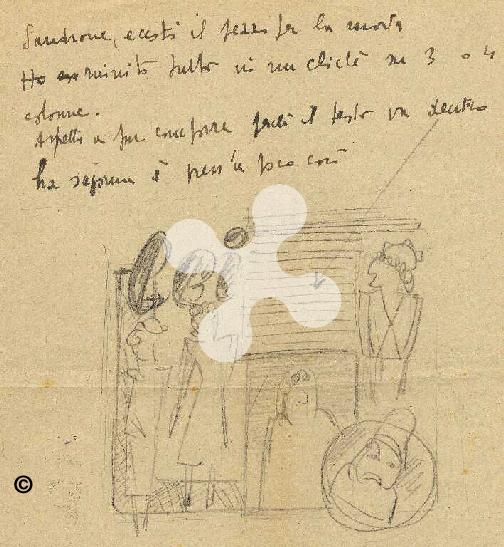 Sandrone, eccoti il pezzo per la moda
Ho riunito tutto in un clichè su 3 o 4
colonne.
Aspetti a far comporre perchè il testo va dentro
ha è poco così
©